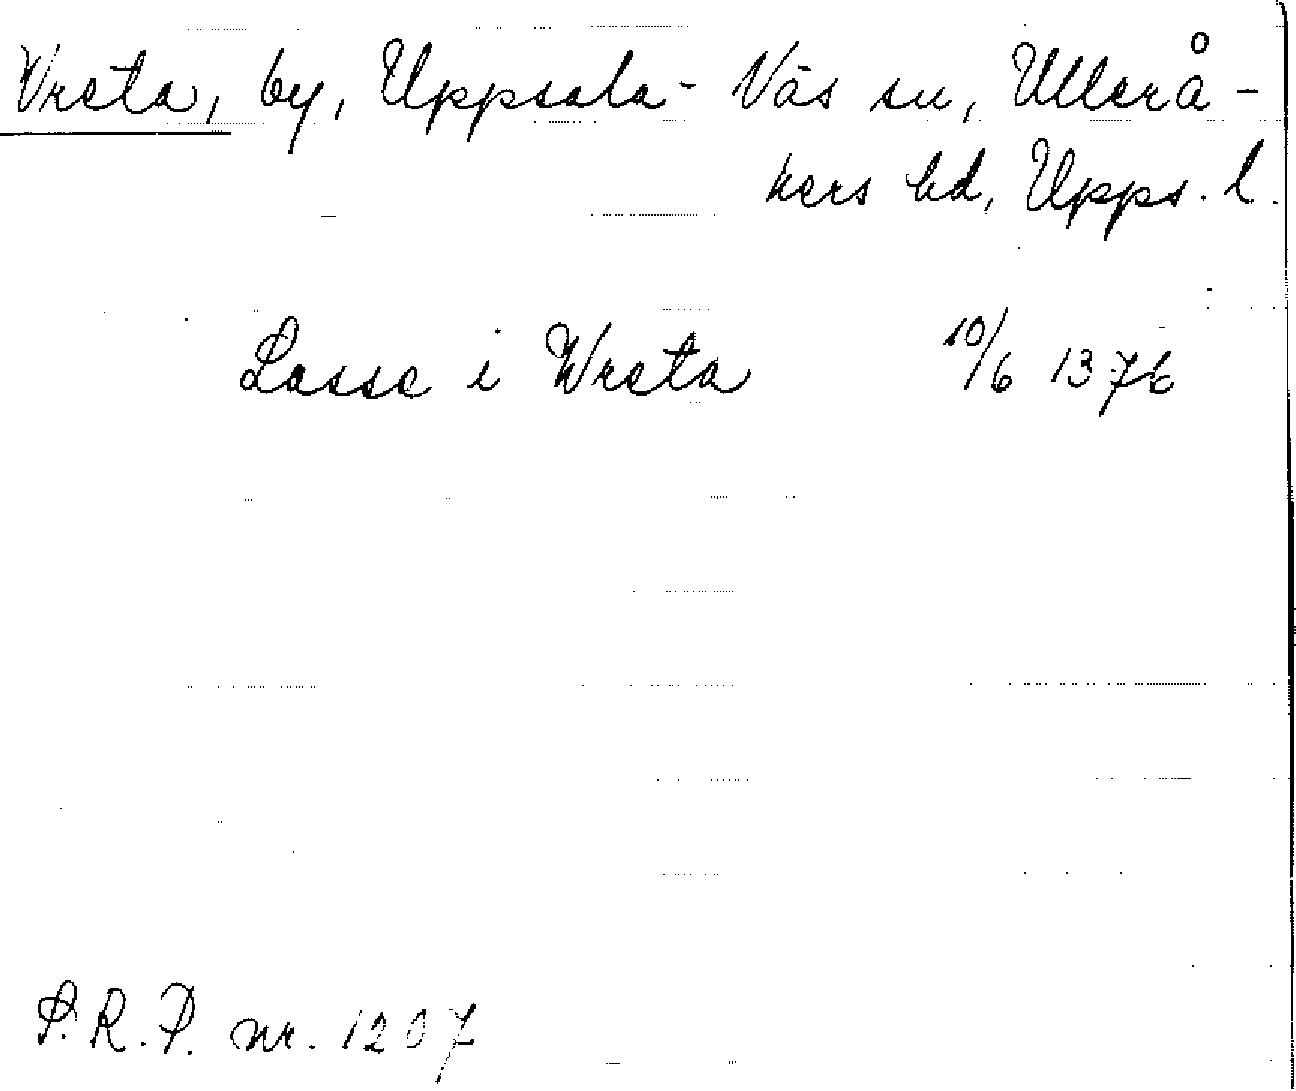 Vreta, by, Uppsala- Näs sn, Ullerå-
kers hd, Upps. l.
Lasse i Wreta 10/6 1376
S.R.P. nr. 1207